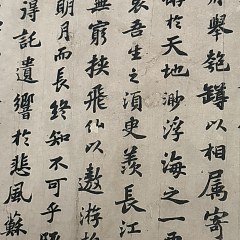 舉匏罇以相属寄
於天地渺浮海之一
哀吾生之湏臾羨長江
無窮挾飛仙以遨游
明月而長終知不可乎
得託遺響於悲風蘇